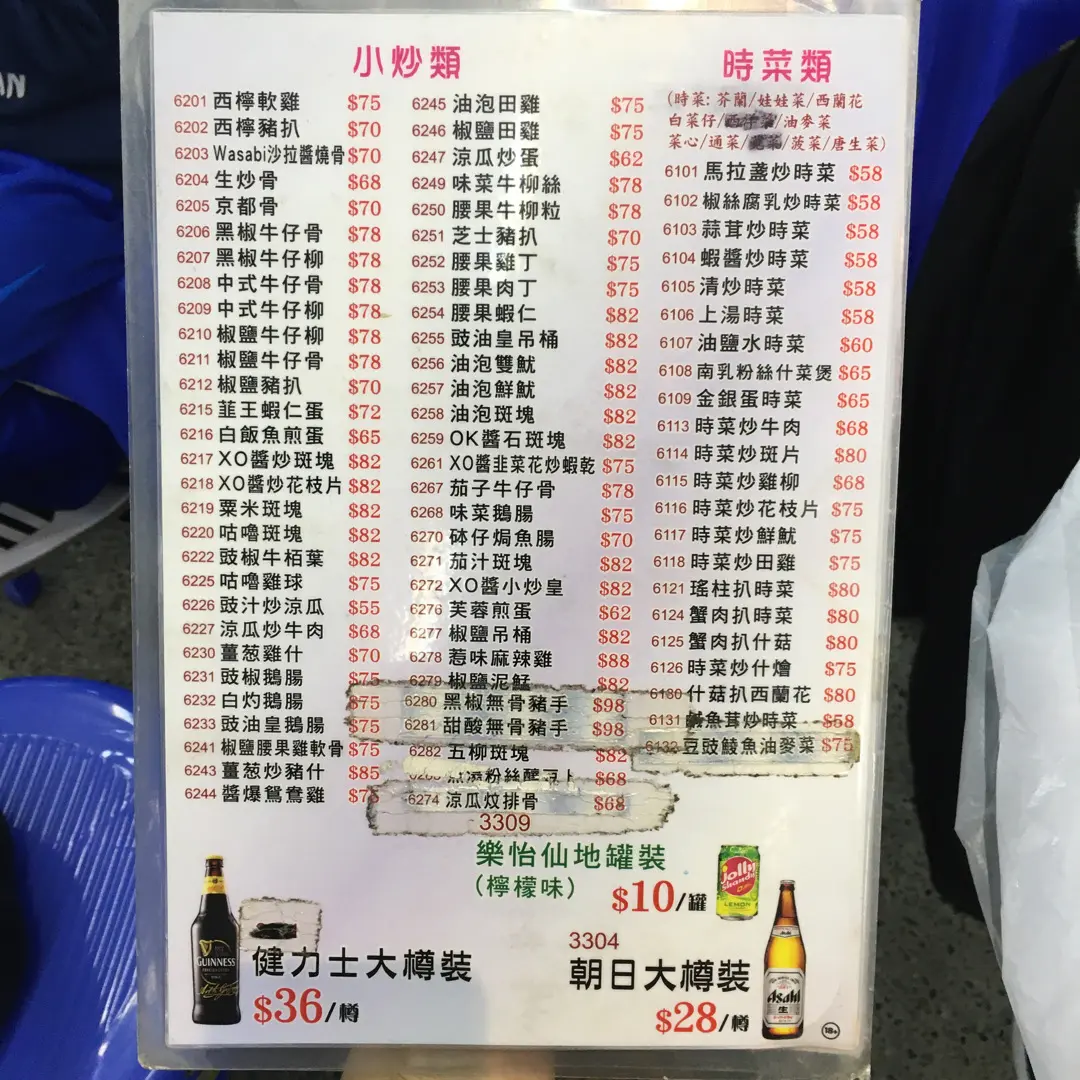 AN
小炒類
6201 西檸軟雞 $75
6202 西檸豬扒 $70
6203 Wasabi沙拉醬燒骨 $70
6204 生炒骨 $68
6205 京都骨 $70
6206 黑椒牛仔骨 $78
6207 黑椒牛仔柳 $78
6208 中式牛仔骨 $78
6209 中式牛仔柳 $78
6210 椒鹽牛仔柳 $78
6211 椒鹽牛仔骨 $78
6212 椒鹽豬扒 $70
6215 韮王蝦仁蛋 $72
6216 白飯魚煎蛋 $65
6217 XO醬炒斑塊 $82
6218 XO醬炒花枝片 $82
6219 粟米斑塊 $82
6220 咕嚕斑塊 $82
6222 豉椒牛栢葉 $82
6225 咕嚕雞球 $75
6226 豉汁炒涼瓜 $55
6227 涼瓜炒牛肉 $68
6230 薑葱雞什 $70
6231 豉椒鵝腸 $75
6232 白灼鵝腸 $75
6233 豉油皇鵝腸 $75
6241 椒鹽腰果雞軟骨 $75
6243 薑葱炒豬什 $85
6244 醬爆鴛鴦雞 $75
6245 油泡田雞 $75
6246 椒鹽田雞 $75
6247 涼瓜炒蛋 $62
6249 味菜牛柳絲 $78
6250 腰果牛柳粒 $78
6251 芝士豬扒 $70
6252 腰果雞丁 $75
6253 腰果肉丁 $75
6254 腰果蝦仁 $82
6255 豉油皇吊桶 $82
6256 油泡雙魷 $82
6257 油泡鮮魷 $82
6258 油泡斑塊 $82
6259 OK醬石斑塊 $82
6261 XO醬韭菜花炒蝦乾 $75
6267 茄子牛仔骨 $78
6268 味菜鵝腸 $75
6270 砵仔焗魚腸 $70
6271 茄汁斑塊 $82
6272 XO醬小炒皇 $82
6276 芙蓉煎蛋 $62
6277 椒鹽吊桶 $82
6278 惹味麻辣雞 $88
6279 椒鹽泥鯭 $82
6280 黑椒無骨豬手 $98
6281 甜酸無骨豬手 $98
6282 五柳斑塊 $82
粉絲 $68
6274 涼瓜炆排骨 $68
時菜類
(時菜: 芥蘭/娃娃菜/西蘭花
白菜仔/西/油麥菜
菜心/通菜/菠菜/唐生菜)
6101 馬拉盞炒時菜 $58
6102 椒絲腐乳炒時菜 $58
6103 蒜茸炒時菜 $58
6104 蝦醬炒時菜 $58
6105 清炒時菜 $58
6106 上湯時菜 $58
6107 油鹽水時菜 $60
6108 南乳粉絲什菜煲 $65
6109 金銀蛋時菜 $65
6113 時菜炒牛肉 $68
6114 時菜炒斑片 $80
6115 時菜炒雞柳 $68
6116 時菜炒花枝片 $75
6117 時菜炒鮮魷 $75
6118 時菜炒田雞 $75
6121 瑤柱扒時菜 $80
6124 蟹肉扒時菜 $80
6125 蟹肉扒什菇 $80
6126 時菜炒什燴 $75
6130 什菇扒西蘭花 $80
6131 鹹魚茸炒時菜 $58
6132 豆豉鯪魚油麥菜 $75
3309
樂怡仙地罐裝
(檸檬味)
$10/罐
jolly
Shandy
LEMON
GUINNESS
健力士大樽裝
$36/樽
3304
朝日大樽裝
$28/樽
Asahi
生
18+